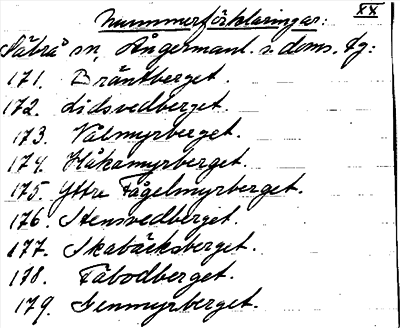 XX
Nummerförklaringar:
Nätra sn, Ångermanl. s. doms. fg:
171. Bräntberget.
172. Lidsvedberget.
173. Välmyrberget.
174. Håkamyrberget.
175. Yttre Fågelmyrberget.
176. Stensvedberget.
177. Skabäcksberget.
178. Fäbodberget.
179. Fenmyrberget.